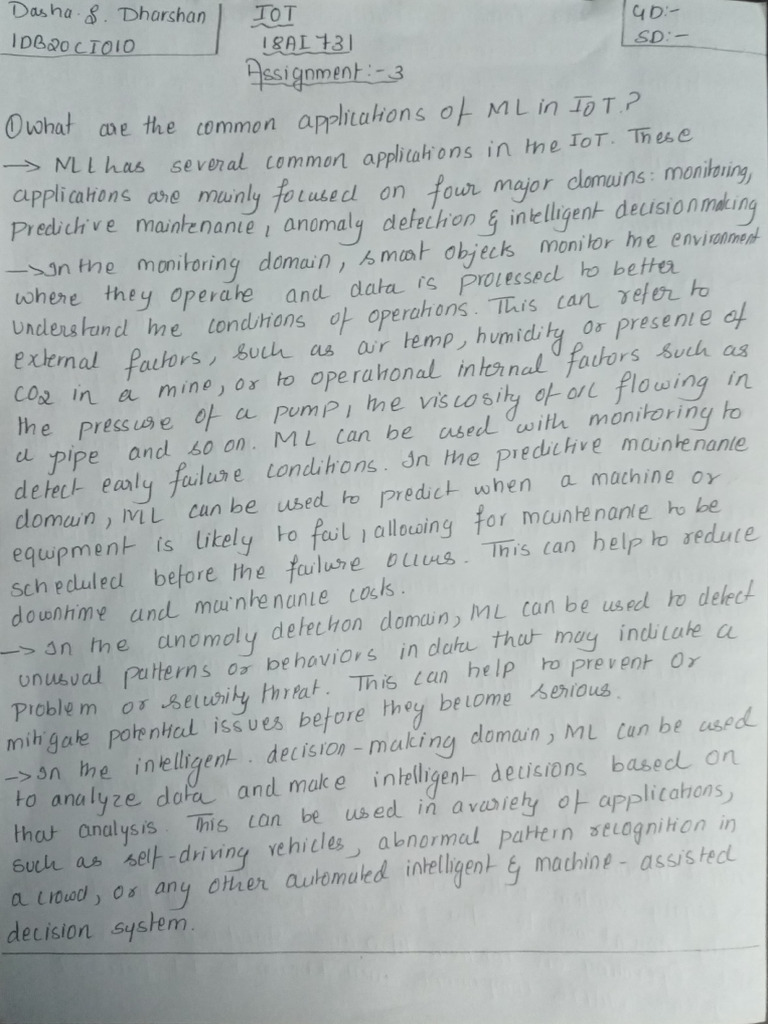 Dasha. S. Dharshan
1DB20CI010
IOT
18AI731
Assignment:-3
GD:-
SD:-
① What are the common applications of ML in IOT?
→ ML has several common applications in the IoT. These
applications are mainly focused on four major domains: monitoring,
Predictive maintenance, anomaly detection & intelligent decision making
→ In the monitoring domain, smart objects monitor the environment
where they operate and data is processed to better
understand the conditions of operations. This can refer to
external factors, such as air temp, humidity or presence of
CO2 in a mine, or to operational internal factors such as
the pressure of a pump, the viscosity of oil flowing in
a pipe and so on. ML can be used with monitoring to
detect early failure conditions. In the predictive maintenance
domain, ML can be used to predict when a machine or
equipment is likely to fail, allowing for maintenance to be
scheduled before the failure occurs. This can help to reduce
downtime and maintenance costs.
→ In the anomoly detection domain, ML can be used to detect
unusual patterns or behaviors in data that may indicate a
problem or security threat. This can help to prevent or
mitigate potential issues before they become serious.
→ In the intelligent. decision-making domain, ML can be used
to analyze data and make intelligent decisions based on
that analysis. This can be used in a variety of applications,
such as self-driving vehicles, abnormal pattern recognition in
a crowd, or any other automated intelligent & machine-assisted
decision system.